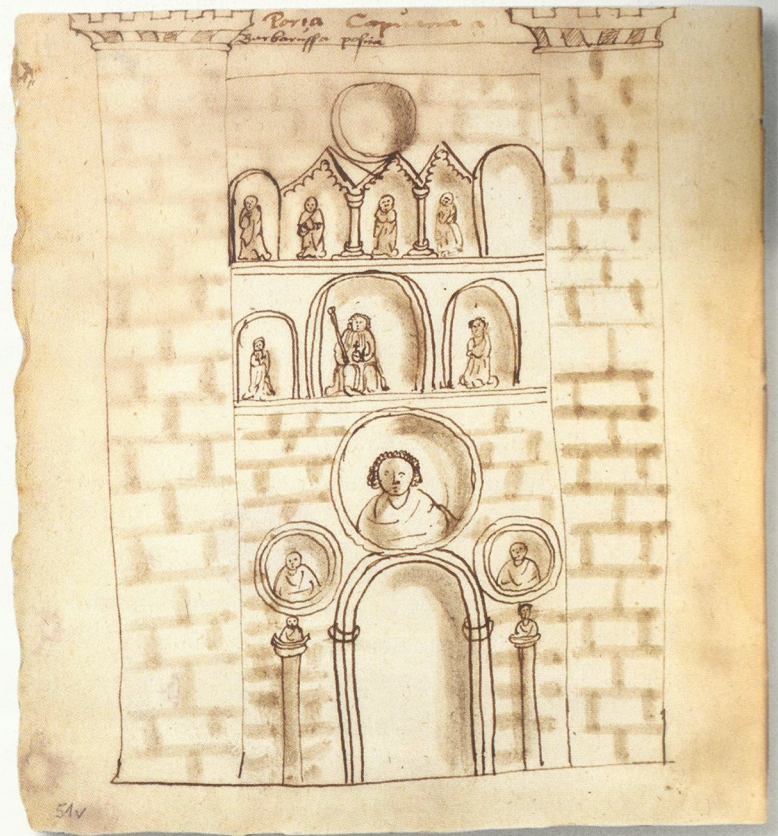 Porta Capuana a
Barbarussa posita
51v